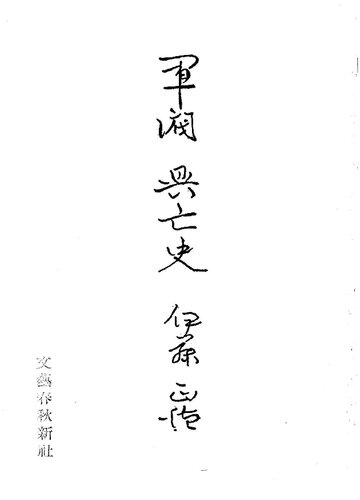 軍閥 興亡史 伊藤正徳
文藝春秋新社